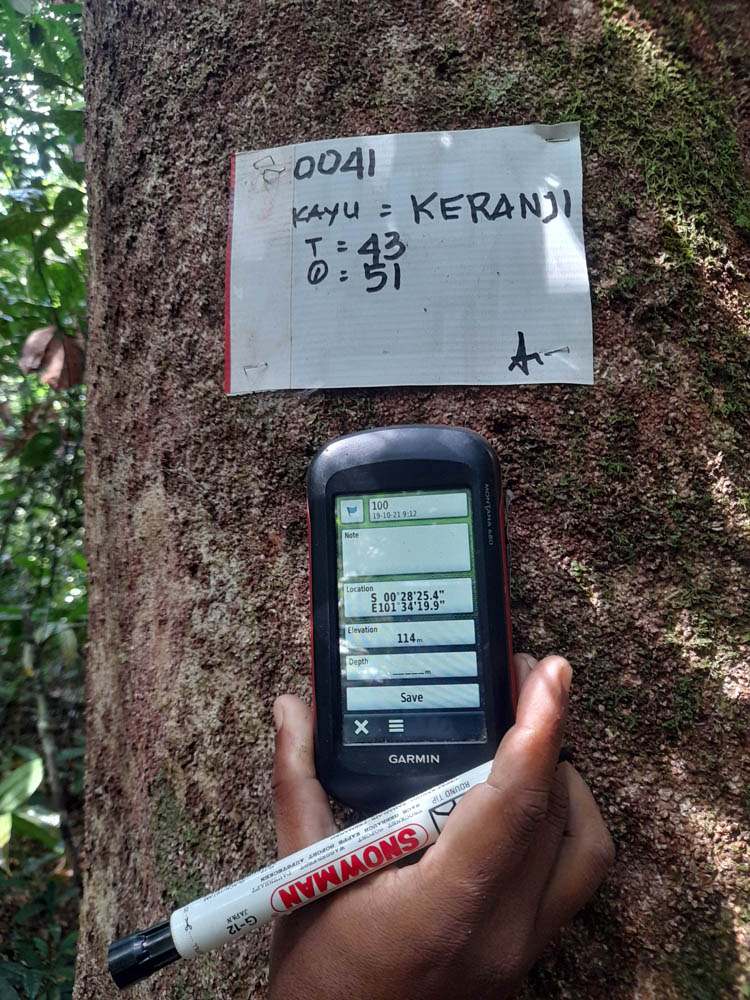 0041
KAYU = KERANJI
T = 43
Ⓘ = 51
MONTANA 680
100
19-10-21 9:12
Note
Location
S 00°28'25.4"
E101°34'19.9"
Elevation
114m
Depth
_____m
Save
GARMIN
ROUND TIP
SNOWMAN
G-12
JAPAN